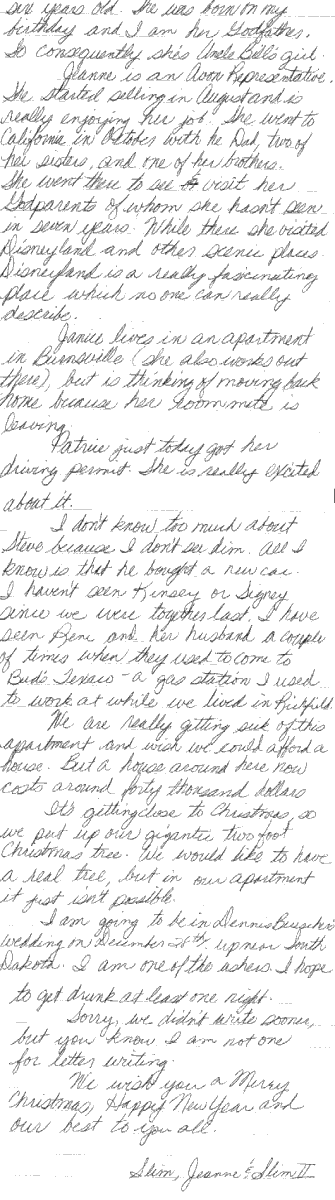 six years old. She was born on my
birthday and I am her Godfather.
So consequently she's Uncle Bill's girl.
Jeanne is an Avon Representative.
She started selling in August and is
really enjoying her job. She went to
California in October with he Dad, two of
her sisters, and one of her brothers.
She went there to see to visit her
Godparents of whom she hasn't seen
in seven years. While there she visited
Disneyland and other scenic places.
Disneyland is a really fascinating
place which no one can really
describe.
Janice lives in an apartment
in Burnsville (she also works out
there), but is thinking of moving back
home because her roommate is
leaving.
Patrice just today got her
driving permit. She is really excited
about it.
I don't know too much about
Steve because I don't see him. All I
know is that he bought a new car.
I haven't seen Kinsey or Signey
since we were together last. I have
seen Rene and her husband a couple
of times when they used to come to
Bud's Texaco - a gas station I used
to work at while we lived in Richfield.
We are really gitting sick of this
apartment and wish we could afford a
house. But a house around here now
costs around forty thousand dollars
It's gitting close to Christmas, so
we put up our gigantic two foot
Christmas tree. We would like to have
a real tree, but in our apartment
it just isn't possible.
I am going to be in Dennis
wedding on December 28th, up near South
Dakota. I am one of the ushers. I hope
to get drunk at least one night.
Sorry, we didn't write sooner,
but you know I am not one
for letter writing.
We wish you a Merry
Christmas, Happy New Year and
our best to you all.
Slim, Jeanne & Slim II